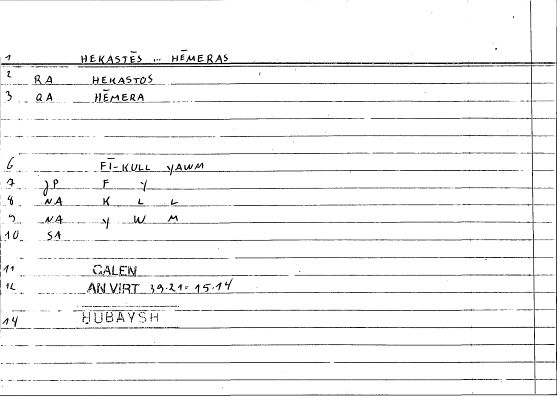 1 HEKASTĒS ... HĒMERAS
2 RA HEKASTOS
3 QA HĒMERA
6 FĪ-KULL YAWM
7 JP F Y
8 NA K L L
9 NA Y W M
10 SA
11 GALEN
12 AN VIRT 39.21 = 15.14
14 HUBAYSH